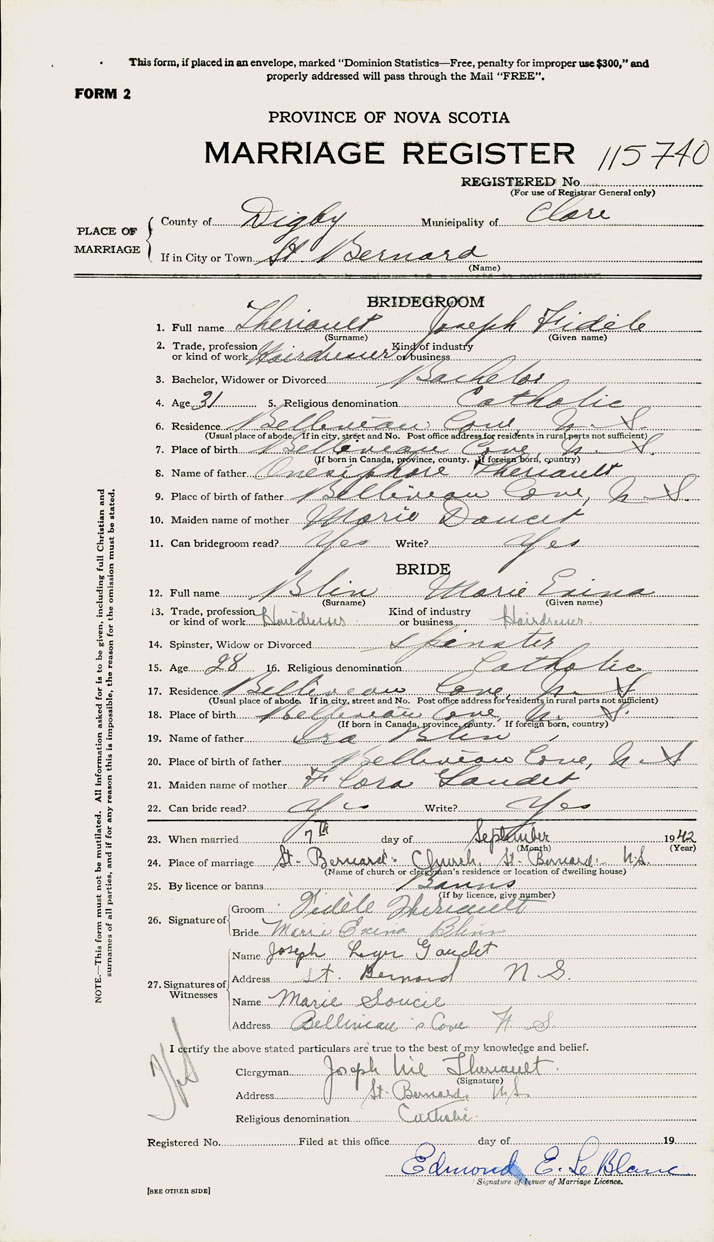 This form, if placed in an envelope, marked "Dominion Statistics—Free, penalty for improper use $300," and
properly addressed will pass through the Mail "FREE".
FORM 2
PROVINCE OF NOVA SCOTIA
MARRIAGE REGISTER 115740
REGISTERED No.
(For use of Registrar General only)
PLACE OF MARRIAGE
County of Digby Municipality of Clare
If in City or Town St Bernard
(Name)
BRIDEGROOM
1. Full name Theriault Joseph Fidèle
(Surname) (Given name)
2. Trade, profession or kind of work Hairdresser Kind of industry or business
3. Bachelor, Widower or Divorced Bachelor
4. Age 31 5. Religious denomination Catholic
6. Residence Belliveau Cove, N. S.
(Usual place of abode. If in city, street and No. Post office address for residents in rural parts not sufficient)
7. Place of birth Belliveau Cove N. S.
(If born in Canada, province, county. If foreign born, country)
8. Name of father Onesiphore Theriault
9. Place of birth of father Belliveau Cove, N. S.
10. Maiden name of mother Marie Doucet
11. Can bridegroom read? Yes Write? Yes
BRIDE
12. Full name Blin Marie Exina
(Surname) (Given name)
13. Trade, profession or kind of work Hairdresser Kind of industry or business Hairdresser
14. Spinster, Widow or Divorced Spinster
15. Age 28 16. Religious denomination Catholic
17. Residence Belliveau Cove, N. S
(Usual place of abode. If in city, street and No. Post office address for residents in rural parts not sufficient)
18. Place of birth Belliveau Cove, N. S
(If born in Canada, province, county. If foreign born, country)
19. Name of father Ira Blin
20. Place of birth of father Belliveau Cove, N. S
21. Maiden name of mother Flora Gaudet
22. Can bride read? Yes Write? Yes
23. When married 7th day of September 1942
(Month) (Year)
24. Place of marriage St-Bernard Church, St-Bernard N.S.
(Name of church or clergyman's residence or location of dwelling house)
25. By licence or banns Banns
(If by licence, give number)
26. Signature of Groom Fidèle Theriault
Bride Marie Exina Blinn
27. Signatures of Witnesses
Name Joseph Leger Gaudet
Address St. Bernard N. S.
Name Marie Soucie
Address Belliveau's Cove N. S.
I certify the above stated particulars are true to the best of my knowledge and belief.
Clergyman Joseph Theriault
(Signature)
Address St-Bernard, N.S.
Religious denomination Catholic
Registered No. Filed at this office day of 19
Edmond E. LeBlanc
Signature of Issuer of Marriage Licence.
[SEE OTHER SIDE]
NOTE.—This form must not be mutilated. All information asked for is to be given, including full Christian and
surnames of all parties, and if for any reason this is impossible, the reason for the omission must be stated.